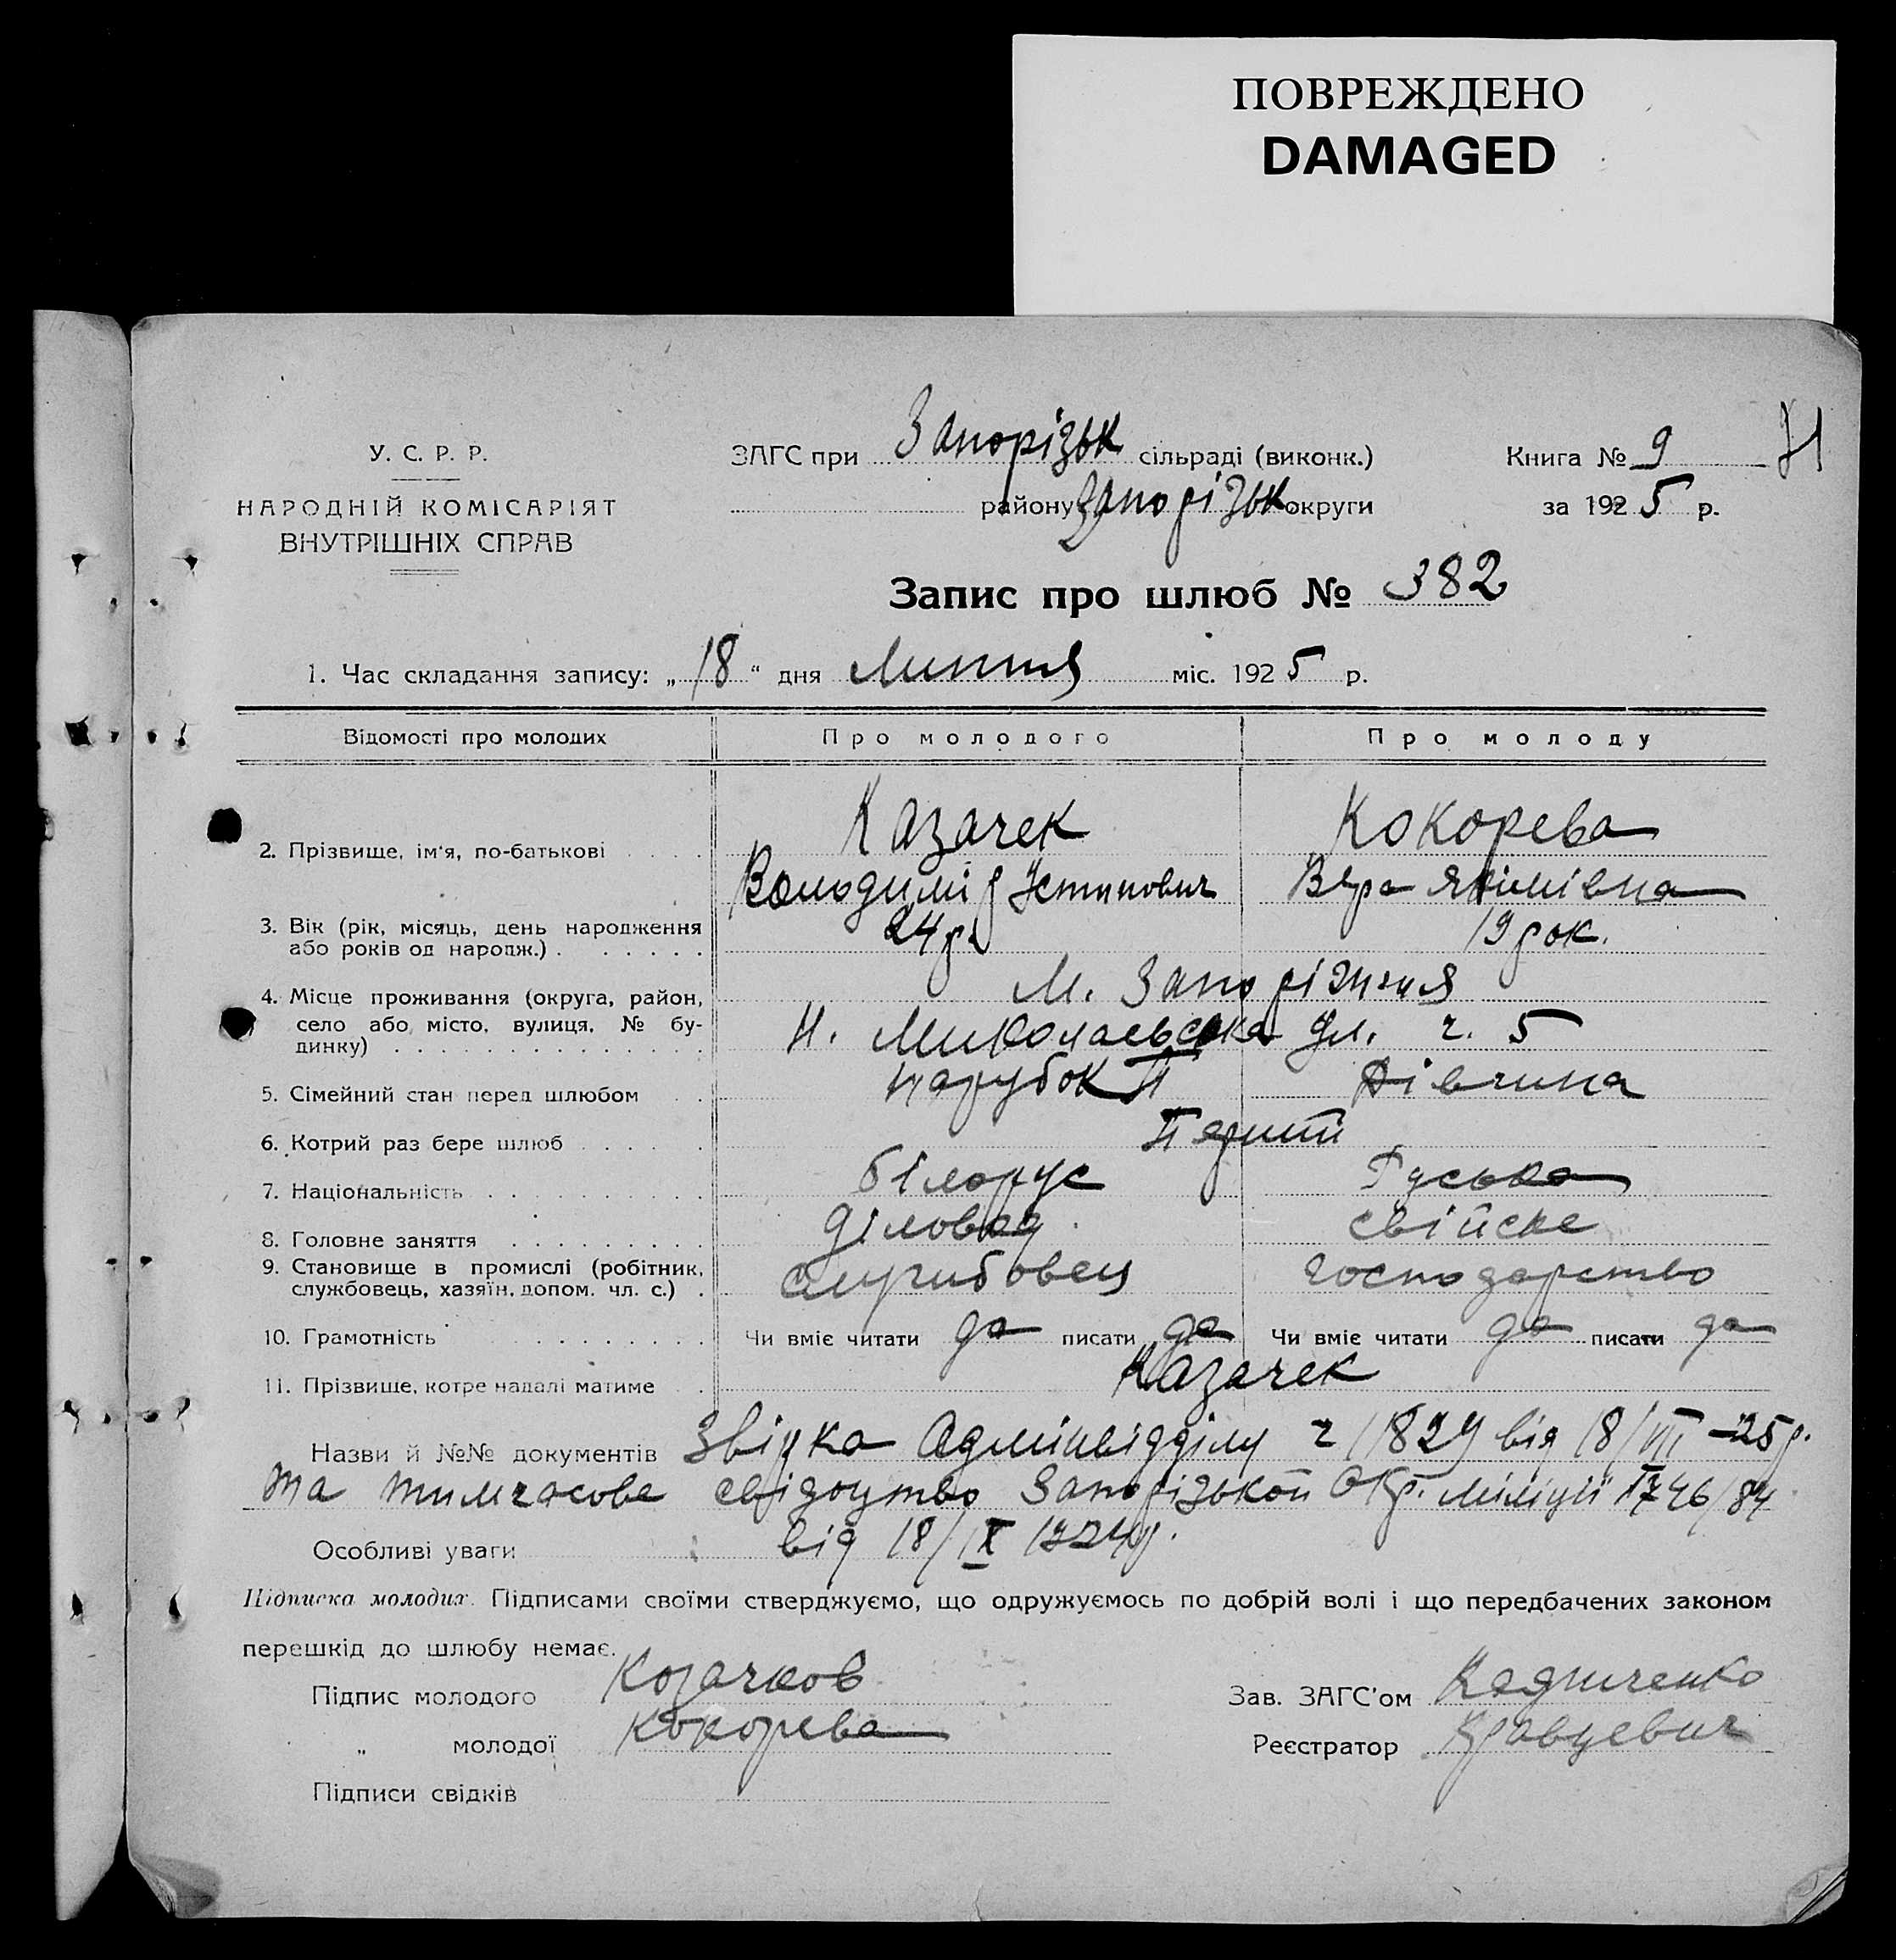 ПОВРЕЖДЕНО
DAMAGED
У. С. Р. Р.
НАРОДНІЙ КОМІСАРІЯТ
ВНУТРІШНІХ СПРАВ
ЗАГС при Запорізьк сільраді (виконк.)
району Запорізьк округи
Книга № 9
за 1925 р.
Запис про шлюб № 382
1. Час складання запису: „18“ дня Липня міс. 1925 р.
Відомості про молодих Про молодого Про молоду
Казачек Кокорева
2. Прізвище, ім'я, по-батькові
Володимір Устинович Вера Якімівна
3. Вік (рік, місяць, день народження 24 р. 19 рок.
або років од народж.)
М. Запоріжжя
4. Місце проживання (округа, район,
село або місто, вулиця, № бу- Н. Миколаевська ул. ч. 5
динку)
5. Сімейний стан перед шлюбом парубок Дівчина
6. Котрий раз бере шлюб Перший
7. Національність білорус Руська
8. Головне заняття діловод свійске
9. Становище в промислі (робітник,
службовець, хазяїн, допом. чл. с.) службовец господарство
10. Грамотність Чи вміє читати да писати да Чи вміє читати да писати да
11. Прізвище, котре надалі матиме Казачек
Назви й №№ документів Звідка Адмінвідділу ч 11829 від 18/VII-25 р.
та тимчасове свідоцтво Запорізькой Окр. міліції 1746/84
від 18/IX 1924 р.
Особливі уваги
Підписка молодих. Підписами своїми стверджуємо, що одружуємось по добрій волі і що передбачених законом
перешкід до шлюбу немає.
Підпис молодого Козачков Зав. ЗАГС'ом
„ молодої Кокорева Реєстратор Кравцевич
Підписи свідків